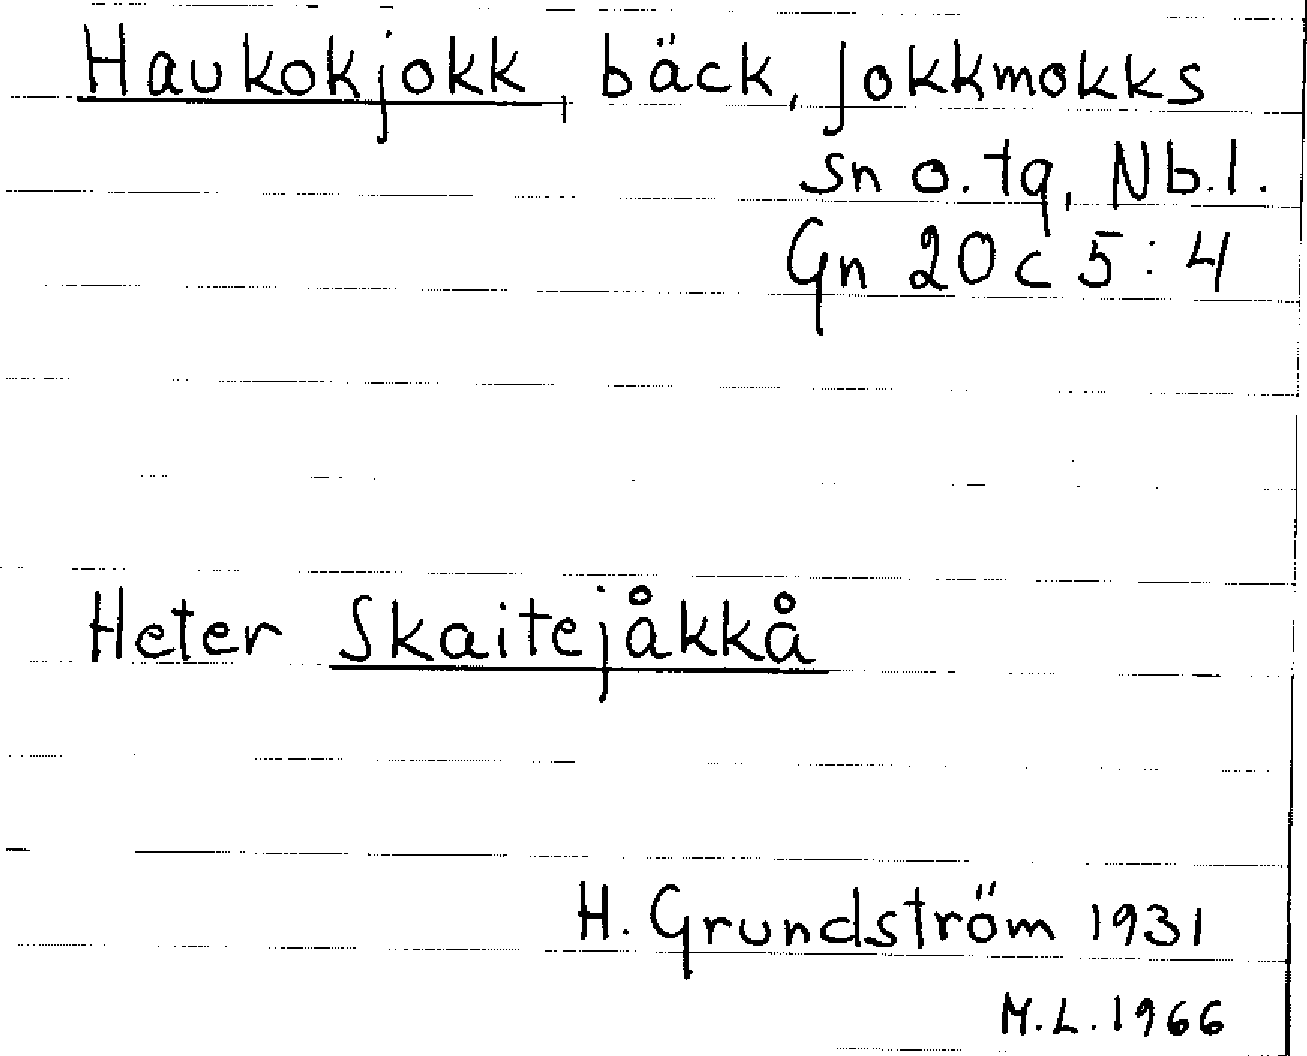 Haukokjokk, bäck, Jokkmokks
sn o. tg, Nb. l.
Gn 20 c 5 : 4
Heter Skaitejåkkå
H. Grundström 1931
M. L. 1966